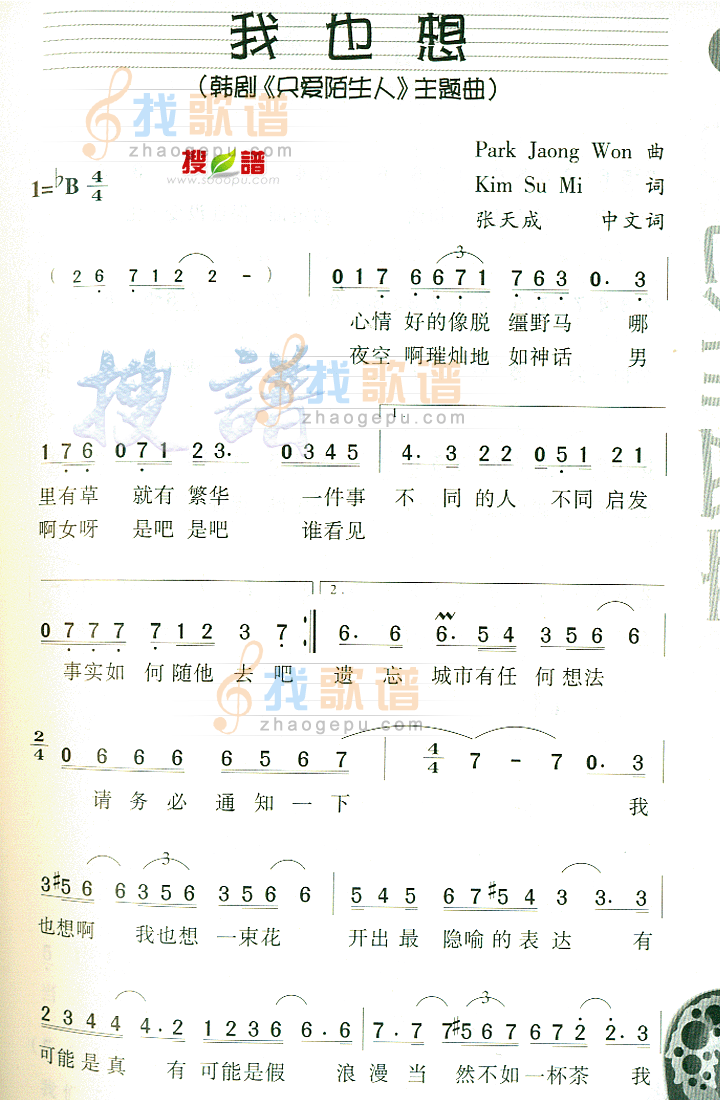 我也想
（韩剧《只爱陌生人》主题曲）
找歌谱
zhaogepu.com
搜谱
www.sooopu.com
Park Jaong Won 曲
Kim Su Mi 词
张天成 中文词
1=♭B 4/4
（2 6 7 1 2 2 -） 0 1 7 6 6 7 1 7 6 3 0. 3
3
心情 好的像脱 缰野马 哪
夜空 啊璀灿地 如神话 男
搜谱
找歌谱
zhaogepu.com
1.
1 7 6 0 7 1 2 3. 0 3 4 5 4. 3 2 2 0 5 1 2 1
里有草 就有 繁华 一件事 不 同的人 不同启发
啊女呀 是吧 是吧 谁看见
2.
0 7 7 7 7 1 2 3 7 :‖ 6. 6 6. 5 4 3 5 6 6
事实如 何随他 去吧 遗忘 城市有任 何想法
找歌谱
zhaogepu.com
2/4 0 6 6 6 6 5 6 7 4/4 7 - 7 0. 3
请务必 通知一下 我
3
3 #5 6 6 3 5 6 3 5 6 6 5 4 5 6 7 #5 4 3 3. 3
也想啊 我也想 一束花 开出最 隐喻的表达 有
3
2 3 4 4 4. 2 1 2 3 6 6. 6 7. 7 7 #5 6 7 6 7 2. 3
可能是真 有可能是假 浪漫当 然不如一杯茶 我